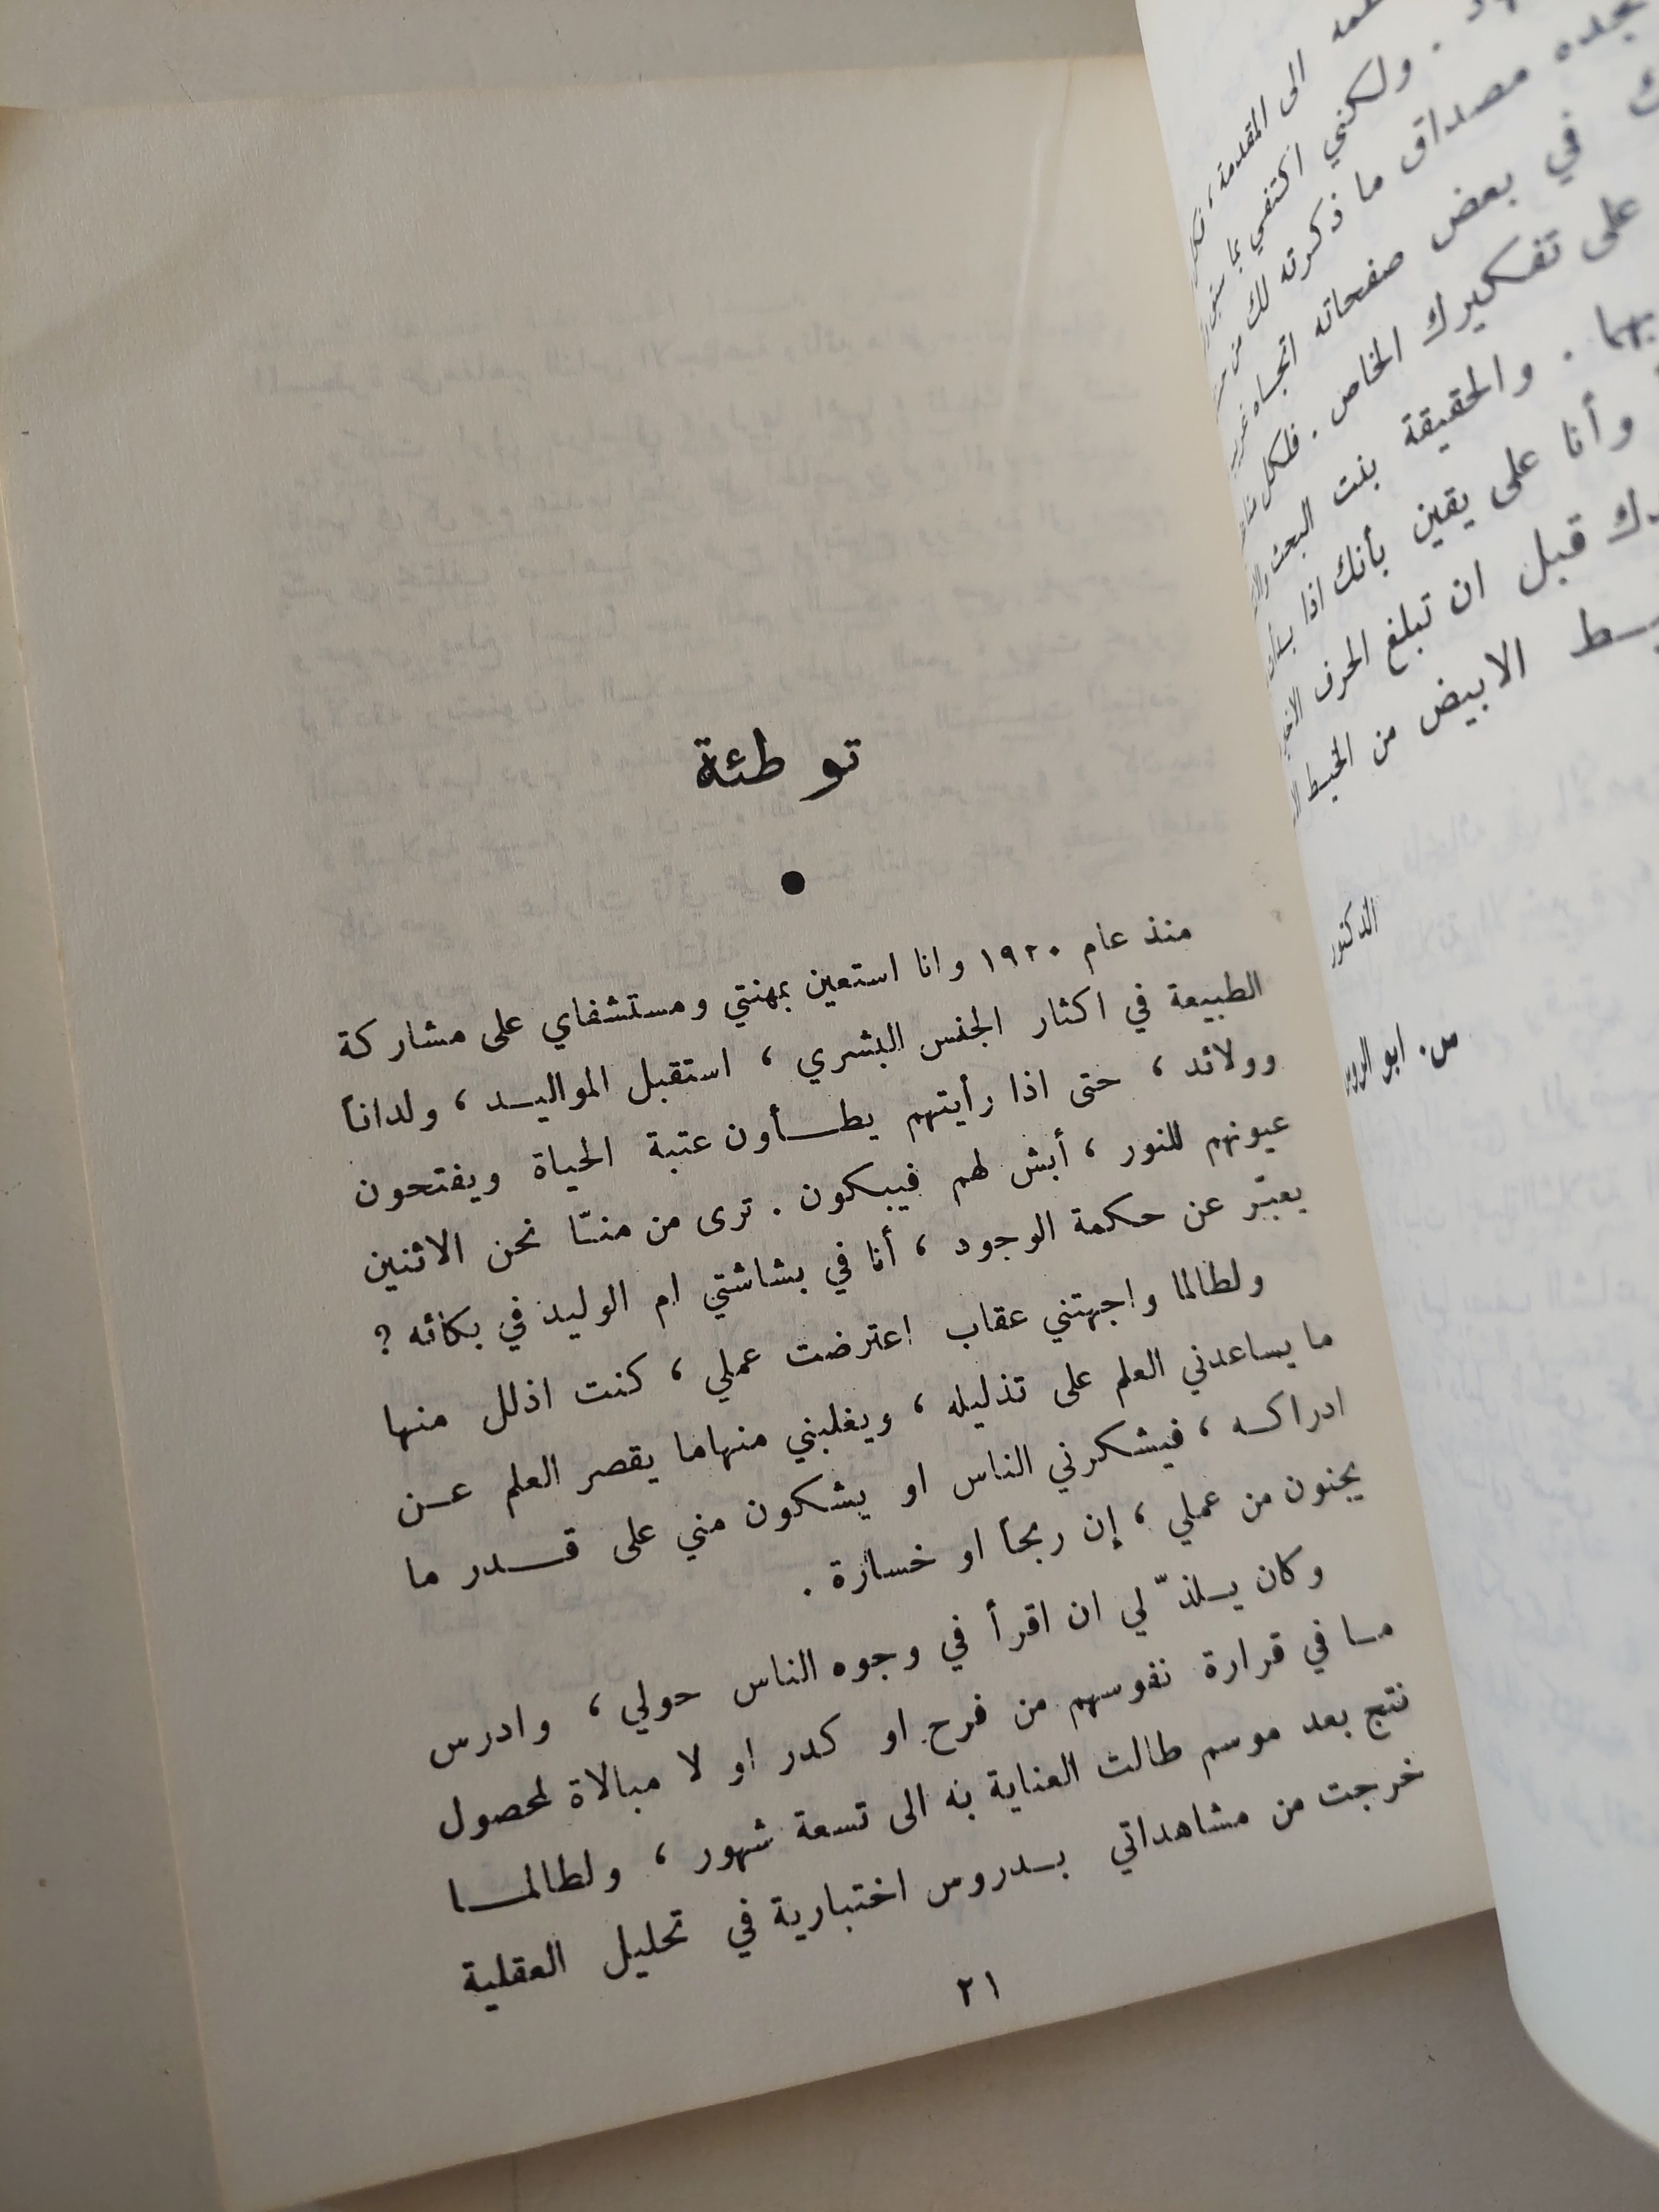 توطئة
منذ عام ١٩٢٠ وانا استعين بمهنتي ومستشفاي على مشاركة
الطبيعة في اكثار الجنس البشري ، استقبل المواليد ، ولداناً
وولائد ، حتى اذا رأيتهم يطأون عتبة الحياة ويفتحون
عيونهم للنور ، أبش لهم فيبكون . ترى من منّا نحن الاثنين
يعبّر عن حكمة الوجود ، أنا في بشاشتي ام الوليد في بكائه ؟
ولطالما واجهتني عقاب اعترضت عملي ، كنت اذلل منها
ما يساعدني العلم على تذليله ، ويغلبني منها ما يقصر العلم عن
ادراكه ، فيشكرني الناس او يشكون مني على قدر ما
يجنون من عملي ، إن ربحاً او خسارة .
وكان يلذّ لي ان اقرأ في وجوه الناس حولي ، وادرس
ما في قرارة نفوسهم من فرح او كدر او لا مبالاة لمحصول
نتج بعد موسم طالت العناية به الى تسعة شهور ، ولطالما
خرجت من مشاهداتي بدروس اختبارية في تحليل العقلية
٢١
الى المقدمة ،
. ولكنني اكتفي بما
مصداق ما ذكرته لك من
في بعض صفحاته اتجاه
على تفكيرك الخاص . فلكل
. والحقيقة بنت البحث
وأنا على يقين بأنك اذا
قبل ان تبلغ الحرف
الابيض من الخيط
الدكتور
س. ابو الروس